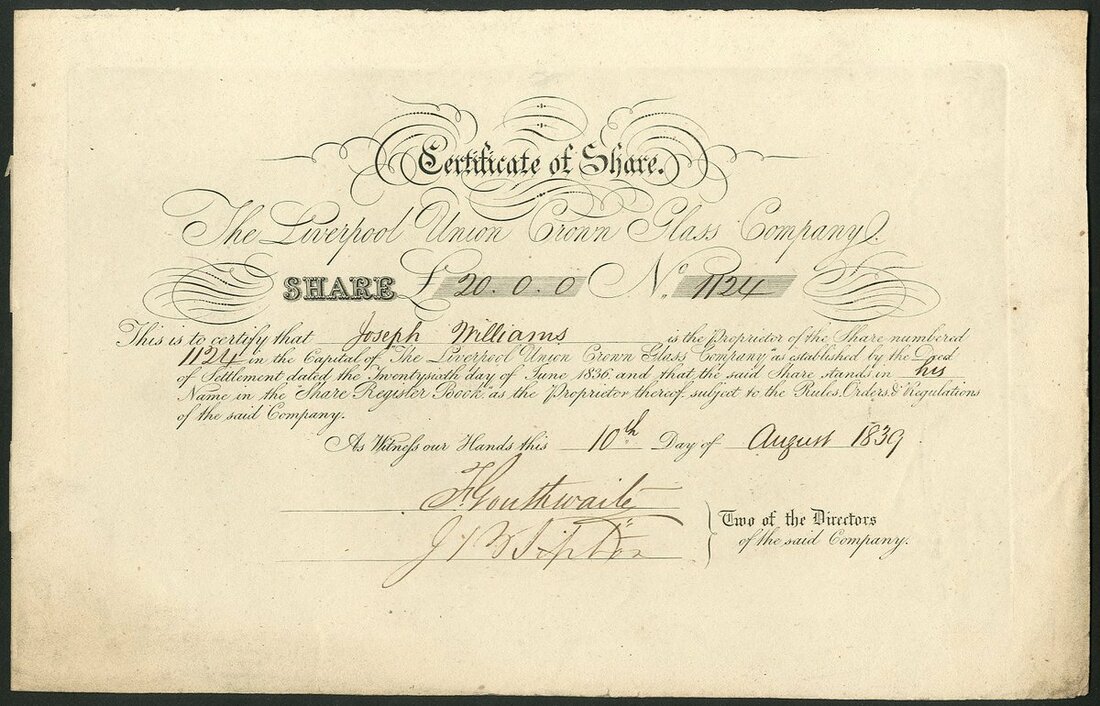 Certificate of Share.
The Liverpool Union Crown Glass Company.
SHARE £ 20. 0. 0 No. 1124
This is to certify that Joseph Williams is the Proprietor of the Share numbered
1124 in the Capital of "The Liverpool Union Crown Glass Company" as established by the Deed
of Settlement dated the Twentysixth day of June 1836 and that the said Share stands in his
Name in the "Share Register Book," as the Proprietor thereof, subject to the Rules, Orders, & Regulations
of the said Company.
As Witness our Hands this 10th Day of August 1839
Two of the Directors
of the said Company.